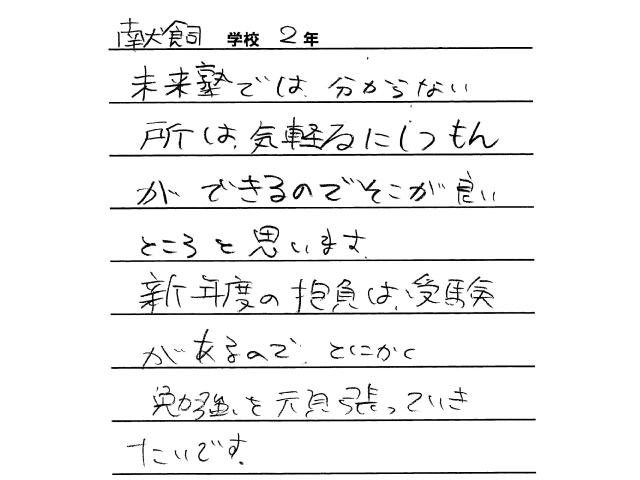 犬飼 学校 2年
未来塾では、分からない
所は、気軽るにしつもん
が できるのでそこが良い
ところと思います。
新年度の抱負は、受験
があるので、とにかく
勉強を頑張っていき
たいです。